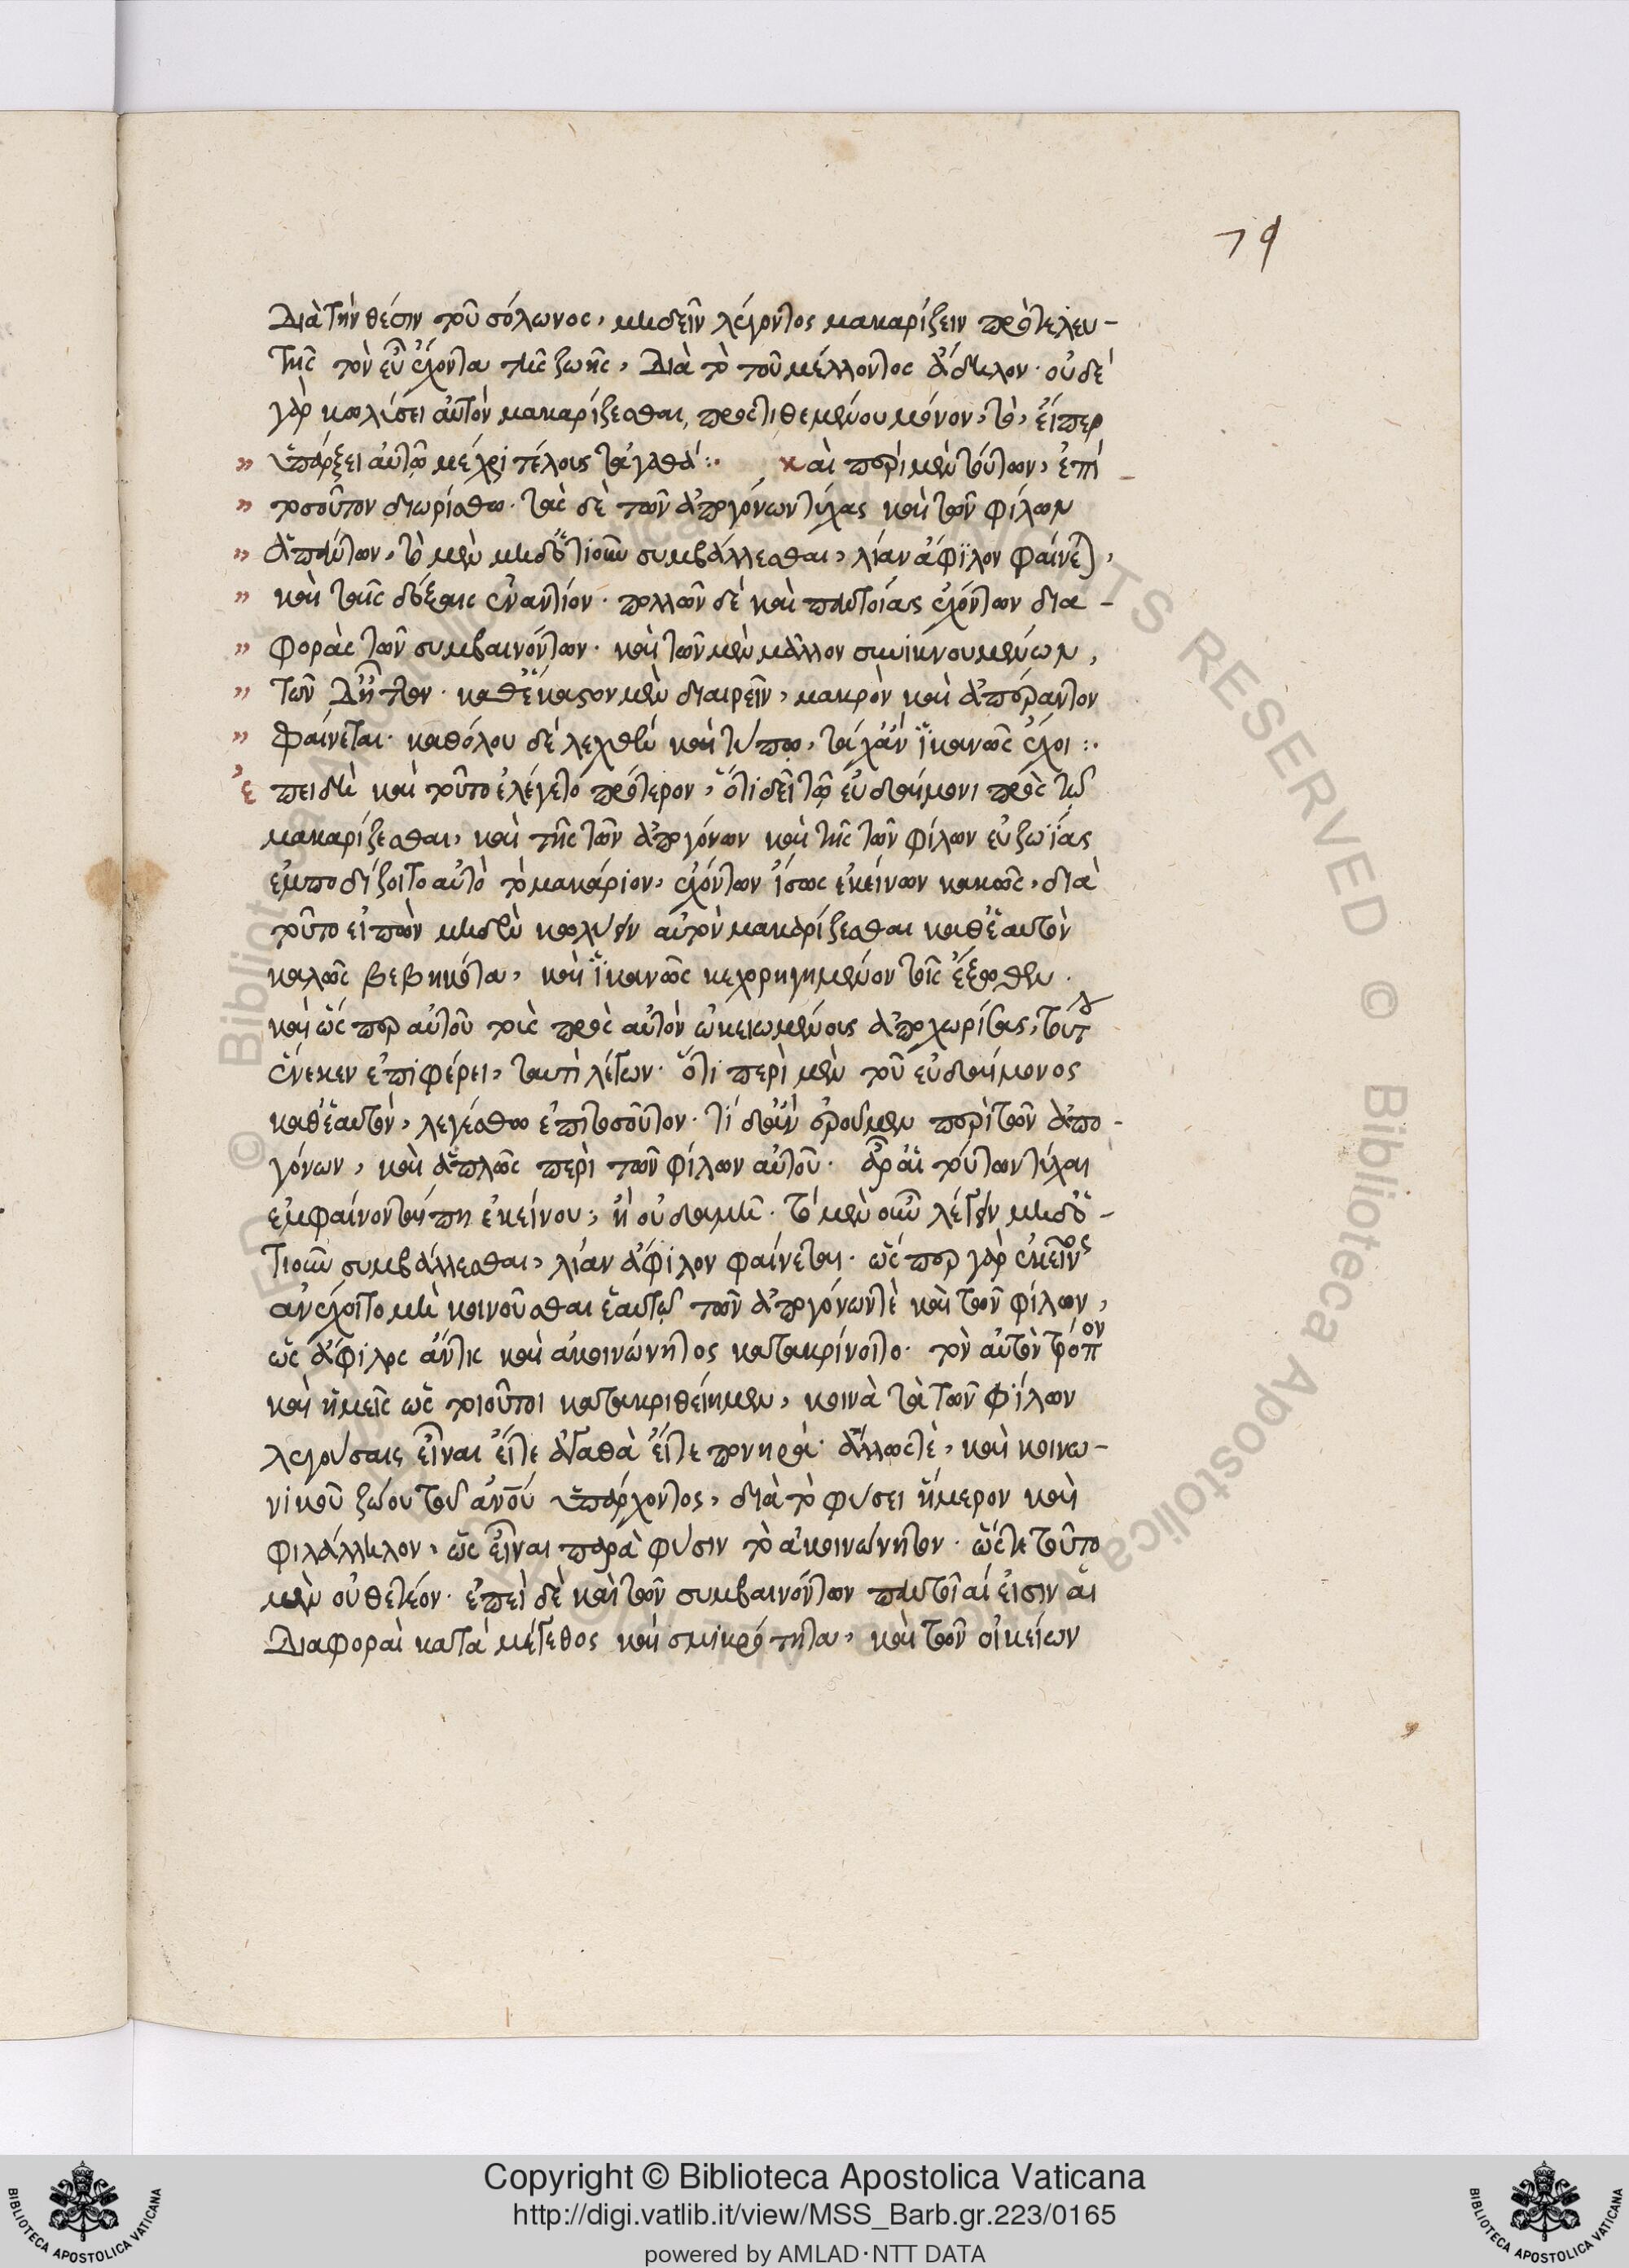 79
Διὰ τὴν θέσιν τοῦ σόλωνος, μὴ δεῖν λέγοντος μακαρίζειν πρὸ τελευ-
τῆς τὸν εὖ ἔχοντα τῆς ζωῆς, Διὰ τὸ τοῦ μέλλοντος ἄδηλον· οὐδὲ
γὰρ κωλύσει αὐτὸν μακαρίζεσθαι, προστιθεμένου μόνον, τὸ, εἴπερ
" ὑπάρξει αὐτῷ μέχρι τέλους τἀγαθά:· καὶ περὶ μὲν τούτων, ἐπὶ
" τοσοῦτον διωρίσθω· τὰς δὲ τῶν ἀπογόνων τύχας καὶ τῶν φίλων
" ἁπάντων, τὸ μὲν μηδοτιοῦν συμβάλλεσθαι, λίαν ἄφιλον φαίνεται,
" καὶ ταῖς δόξαις ἐναντίον· πολλῶν δὲ καὶ παντοίας ἐχόντων δια-
" φορὰς τῶν συμβαινόντων· καὶ τῶν μὲν μᾶλλον συνικνουμένων,
" τῶν Δ' ἧττον· καθ' ἕκαστον μὲν διαιρεῖν, μακρὸν καὶ ἀπέραντον
" φαίνεται· καθόλου δὲ λεχθὲν καὶ τύπῳ, τάχ' ἂν ἱκανῶς ἔχοι:·
ἐπειδὴ καὶ τοῦτο ἐλέγετο πρότερον, ὅτι δεῖ τῷ εὐδαίμονι πρὸς τὸ
μακαρίζεσθαι, καὶ τῆς τῶν ἀπογόνων καὶ τῆς τῶν φίλων εὐζωΐας
ἐμποδίζοιτο αὐτὸ τὸ μακάριον, ἐχόντων ἴσως ἐκείνων κακῶς, διὰ
τοῦτο εἰπὼν μηδὲν κωλύειν αὐτὸν μακαρίζεσθαι καθ' ἑαυτὸν
καλῶς βεβηκότα, καὶ ἱκανῶς κεχορηγημένον τοῖς ἔξωθεν·
καὶ ὥσπερ αὐτοῦ τοὺς πρὸς αὐτὸν ὠκειωμένους ἀποχωρίσας, τούτου
ἕνεκεν ἐπιφέρει, ταυτὶ λέγων· ὅτι περὶ μὲν τοῦ εὐδαίμονος
καθ' ἑαυτὸν, λεγέσθω ἐπὶ τοσοῦτον· τί δ' ἂν ἐροῦμεν περὶ τῶν ἀπο-
γόνων, καὶ ἁπλῶς περὶ τῶν φίλων αὐτοῦ· ἆρ' αἱ τούτων τύχαι
ἐμφαίνονταί πη ἐκείνου; ἢ οὐδαμῆ· τὸ μὲν οὖν λέγειν μηδὸ-
τιοῦν συμβάλλεσθαι, λίαν ἄφιλον φαίνεται· ὥσπερ γὰρ ἐκεῖνος
ἀνέχοιτο μὴ κοινοῦσθαι ἑαυτῷ τῶν ἀπογόνων τὲ καὶ τῶν φίλων,
ὡς ἄφιλος ἄν τις καὶ ἀκοινώνητος κατακρίνοιτο· τὸν αὐτὸν τρόπον
καὶ ἡμεῖς ὡς τοιοῦτοι κατακριθείημεν, κοινὰ τὰ τῶν φίλων
λεγούσαις εἶναι εἴτε ἀγαθὰ εἴτε πονηρά· ἄλλως τὲ, καὶ κοινω-
νικοῦ ζώου τοῦ ἀνου ὑπάρχοντος, διὰ τὸ φύσει ἥμερον καὶ
φιλάλληλον, ὡς εἶναι παρὰ φύσιν τὸ ἀκοινώνητον· ὥστε τοῦτο
μὲν οὐ θετέον· ἐπεὶ δὲ καὶ τῶν συμβαινόντων παντοῖαί εἰσιν αἱ
Διαφοραὶ κατὰ μέγεθος καὶ σμικρότητα, καὶ τῶν οἰκείων
Copyright © Biblioteca Apostolica Vaticana
http://digi.vatlib.it/view/MSS_Barb.gr.223/0165
powered by AMLAD·NTT DATA